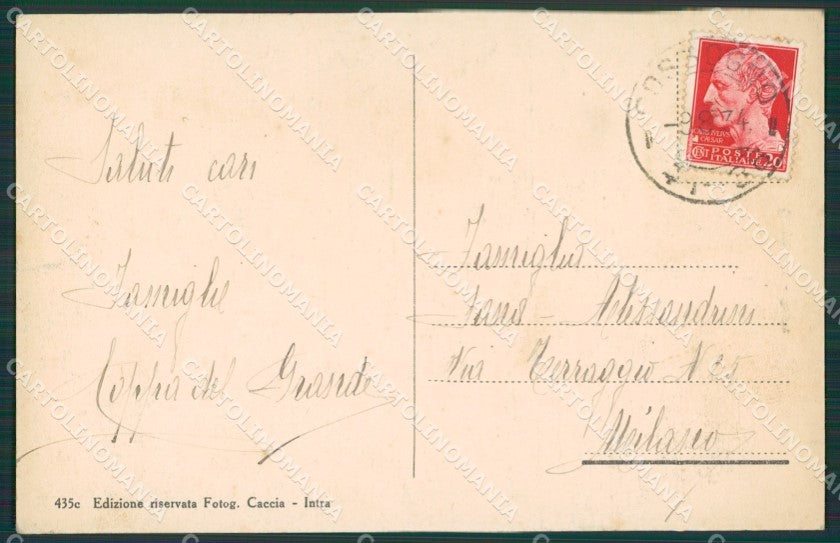 Saluti cari
Famiglie
Coppa del Grande
435c Edizione riservata Fotog. Caccia - Intra
CAIVS IVLIVS
CAESAR
POSTE
ITALIANE
20
Famiglia
Fana - Alessandrini
Via Terraggio N 25
Milano
CARTOLINOMANIA